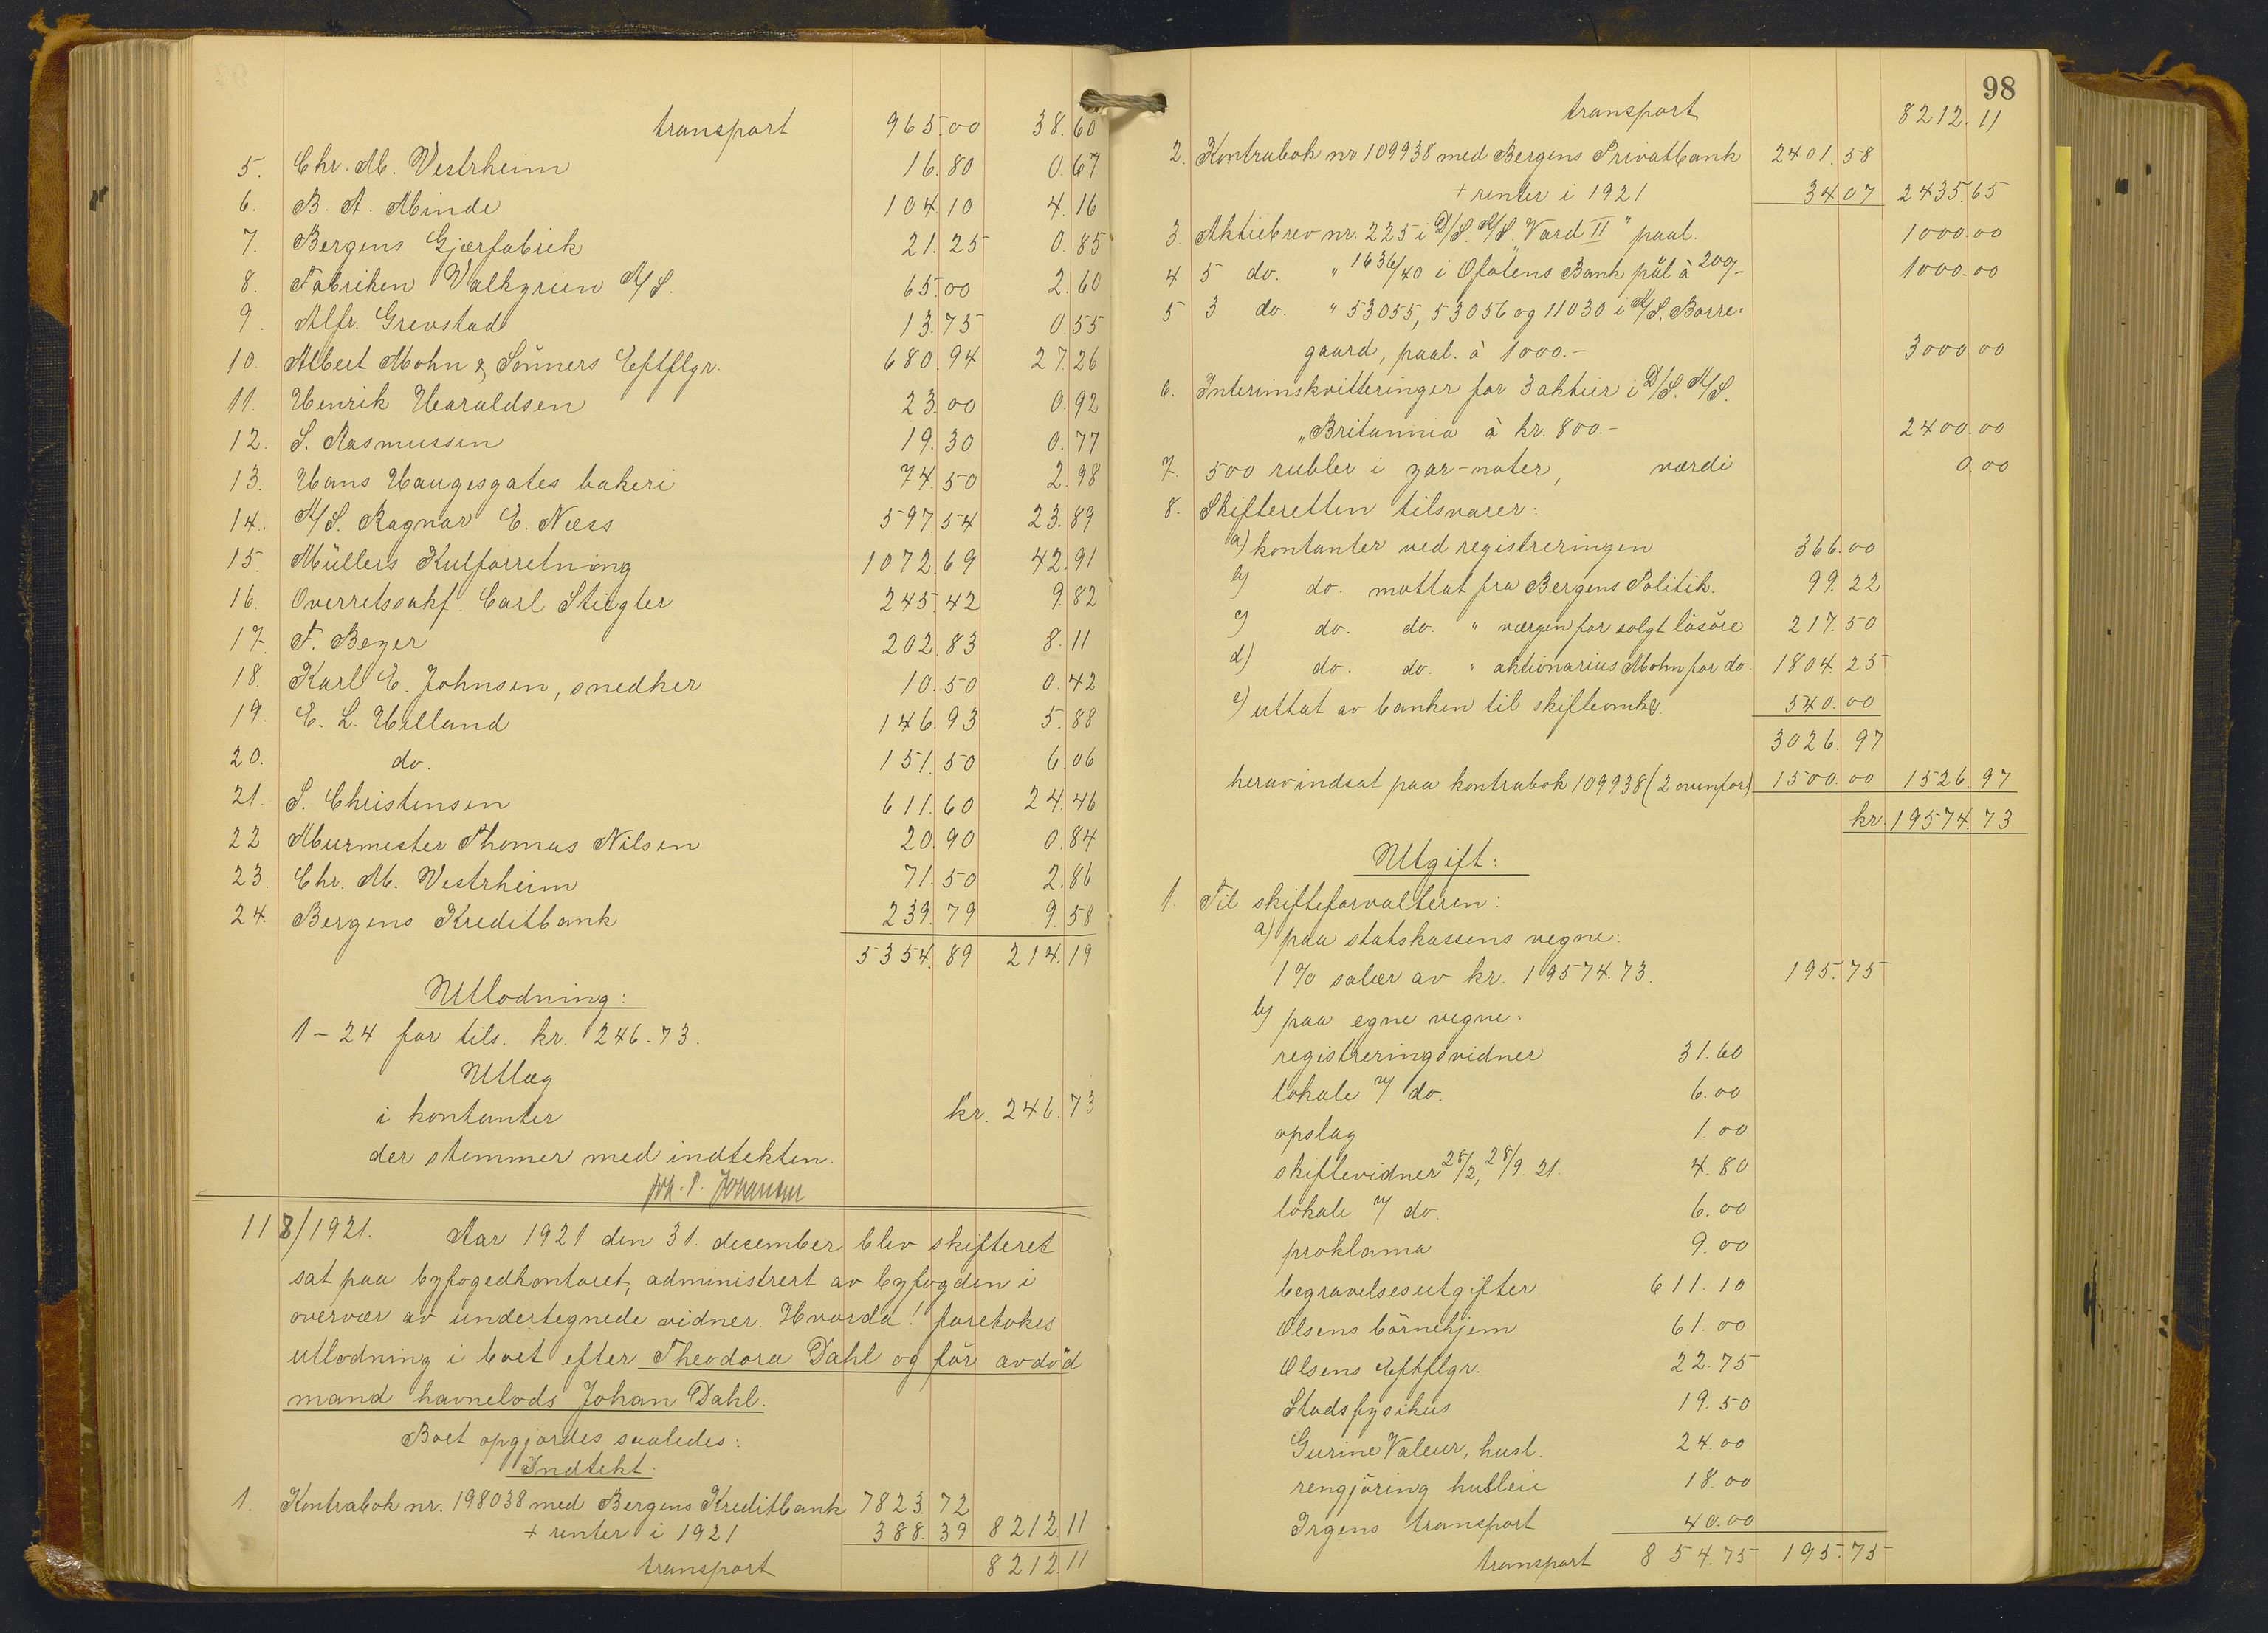 transport 965.00 38.60
5. Chr. M. Vestrheim 16.80 0.67
6. B. A. Minde 104.10 4.16
7. Bergens Gjærfabrik 21.25 0.85
8. Fabriken Valkyrien A/S. 65.00 2.60
9. Alfr. Grevstad 13.75 0.55
10. Albert Mohn & Sönners Eftflgr. 680.94 27.26
11. Henrik Haraldsen 23.00 0.92
12. S. Rasmussen 19.30 0.77
13. Hans Haugesgates bakeri 74.50 2.98
14. A/S. Ragnar E. Næss 597.54 23.89
15. Müllers Kulforretning 1072.69 42.91
16. Overretssakf. Carl Stiegler 245.42 9.82
17. F. Beyer 202.83 8.11
18. Karl E. Johnsen, snedker 10.50 0.42
19. E. L. Helland 146.93 5.88
20. do. 151.50 6.06
21. S. Christensen 611.60 24.46
22 Murmester Thomas Nilsen 20.90 0.84
23. Chr. M. Vestrheim 71.50 2.86
24. Bergens Kreditbank 239.79 9.58
5354.89 214.19
Utlodning:
1-24 faar tils. kr. 246.73.
Utlæg
i kontanter kr. 246.73
der stemmer med indtekten.
Joh. P. Johansen
118/1921. Aar 1921 den 31. december blev skifteret
sat paa byfogedkontoret, administrert av byfogden i
overvær av undertegnede vidner. Hvorda! foretokes
utlodning i boet efter Theodora Dahl og før avdød
mand havnelods Johan Dahl.
Boet opgjordes saaledes:
Indtekt:
1. Kontrabok nr. 198038 med Bergens Kreditbank 7823.72
+ renter i 1921 388.39 8212.11
transport 8212.11
98
transport 8212.11
2. Kontrabok nr. 109938 med Bergens Privatbank 2401.58
+ renter i 1921 34.07 2435.65
3. Aktiebrev nr. 225 i D/S. A/S. "Vard II" paal. 1000.00
4 5 do. " 1636/40 i Ofotens Bank pål à 200/- 1000.00
5 3 do. " 53055, 53056 og 11030 i A/S. Borre=
gaard, paal. à 1000.- 3000.00
6. Interimskvitteringer for 3 aktier i D/S. A/S.
"Britannia à kr. 800.- 2400.00
7. 500 rubler i zar-noter, værdi 0.00
8. Skifteretten tilsvarer:
a) kontanter ved registreringen 366.00
b) do. mottat fra Bergens Politik. 99.22
c) do. do. " værgen for solgt løsöre 217.50
d) do. do. " auktionarius Mohn for do. 1804.25
e) uttat av banken til skifteomk. 540.00
3026.97
herav indsat paa kontrabok 109938 (2 ovenfor) 1500.00 1526.97
kr. 19574.73
Utgift:
1. Til skifteforvalteren:
a) paa statskassens vegne:
1% salær av kr. 19574.73. 195.75
b) paa egne vegne:
registreringsvidner 31.60
lokale v/ do. 6.00
opslag 1.00
skiftevidner 28/2, 28/9. 21. 4.80
lokale v/ do. 6.00
proklama 9.00
begravelsesutgifter 611.10
Olsens börnehjem 61.00
Olsens Eftflgr. 22.75
Stadsfysikus 19.50
Gurine Valeur, husl. 24.00
rengjöring husleie 18.00
Irgens transport 40.00
transport 854.75 195.75